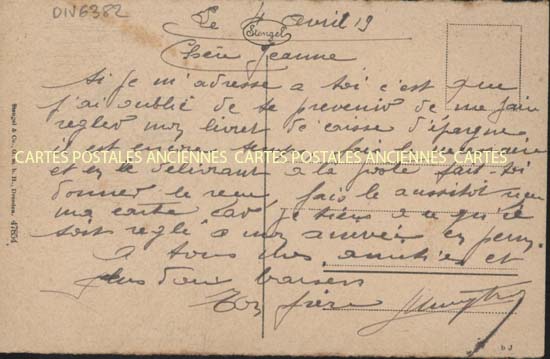 DIV6382
Le 4 avril 19
Stengel
Chère Jeanne
Si je m'adresse a toi c'est que
j'ai oublié de te prevenir de me faire
regler mon livret de caisse d'épargne
il est encore temps fais le necessaire
CARTES POSTALES ANCIENNES CARTES POSTALES ANCIENNES CARTES
et en le delivrant a la poste fait-toi
donner le recu, fais le aussitôt recu
ma carte car je tiens a ce qu'il
soit reglé a mon arrivée en perm.
A tous mes amitiés et
plus doux baisers
Ton frère
Stengel & Co., G. m. b. H., Dresden. 47654